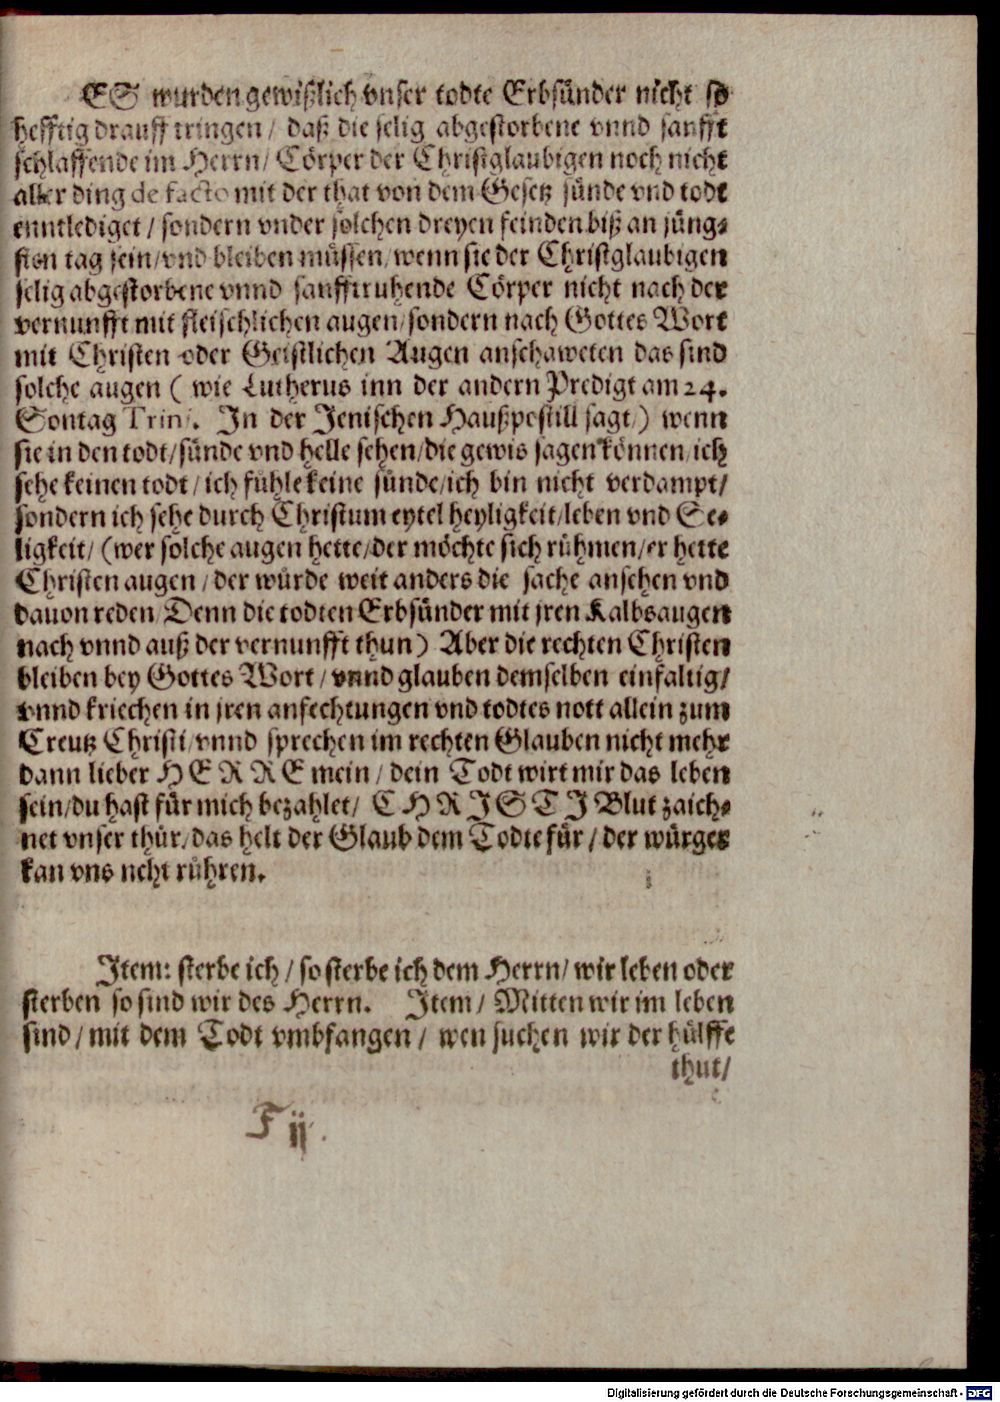 ES wurden gewißlich vnser todte Erbsünder nicht so
hefftig drauff tringen / daß die selig abgestorbene vnnd sanfft
schlaffende im Herrn / Cörper der Christglaubigen noch nicht
aller ding de facto mit der that von dem Gesetz sünde vnd todt
enntlediget / sondern vnder solchen dreyen feinden biß an jüng-
sten tag sein / vnd bleiben müssen / wenn sie der Christglaubigen
selig abgestorbene vnnd sanfftruhende Cörper nicht nach der
vernunfft mit fleischlichen augen / sondern nach Gottes Wort
mit Christen oder Geistlichen Augen anschaweten das sind
solche augen ( wie Lutherus inn der andern Predigt am 24.
Sontag Trini. In der Jenischen Haußpostill sagt / ) wenn
sie in den todt / sünde vnd helle sehen / die gewis sagen können / ich
sehe keinen todt / ich fühle keine sünde / ich bin nicht verdampt /
sondern ich sehe durch Christum eytel heyligkeit / leben vnd Se-
ligkeit / (wer solche augen hette / der möchte sich rühmen / er hette
Christen augen / der würde weit anders die sache ansehen vnd
dauon reden / Denn die todten Erbsünder mit jren Kalbsaugen
nach vnnd auß der vernunfft thun) Aber die rechten Christen
bleiben bey Gottes Wort / vnnd glauben demselben einfaltig /
vnnd kriechen in jren anfechtungen vnd todtes nott allein zum
Creutz Christi / vnnd sprechen im rechten Glauben nicht mehr
dann lieber HERRE mein / dein Todt wirt mir das leben
sein / du hast für mich bezahlet / CHRISTI Blut zaich-
net vnser thür / das helt der Glaub dem Todte für / der würger
kan vns ncht rühren.
Item: sterbe ich / so sterbe ich dem Herrn / wir leben oder
sterben so sind wir des Herrn. Item / Mitten wir im leben
sind / mit dem Todt vmbfangen / wen suchen wir der hülffe
thut /
F ij.
Digitalisierung gefördert durch die Deutsche Forschungsgemeinschaft - DFG